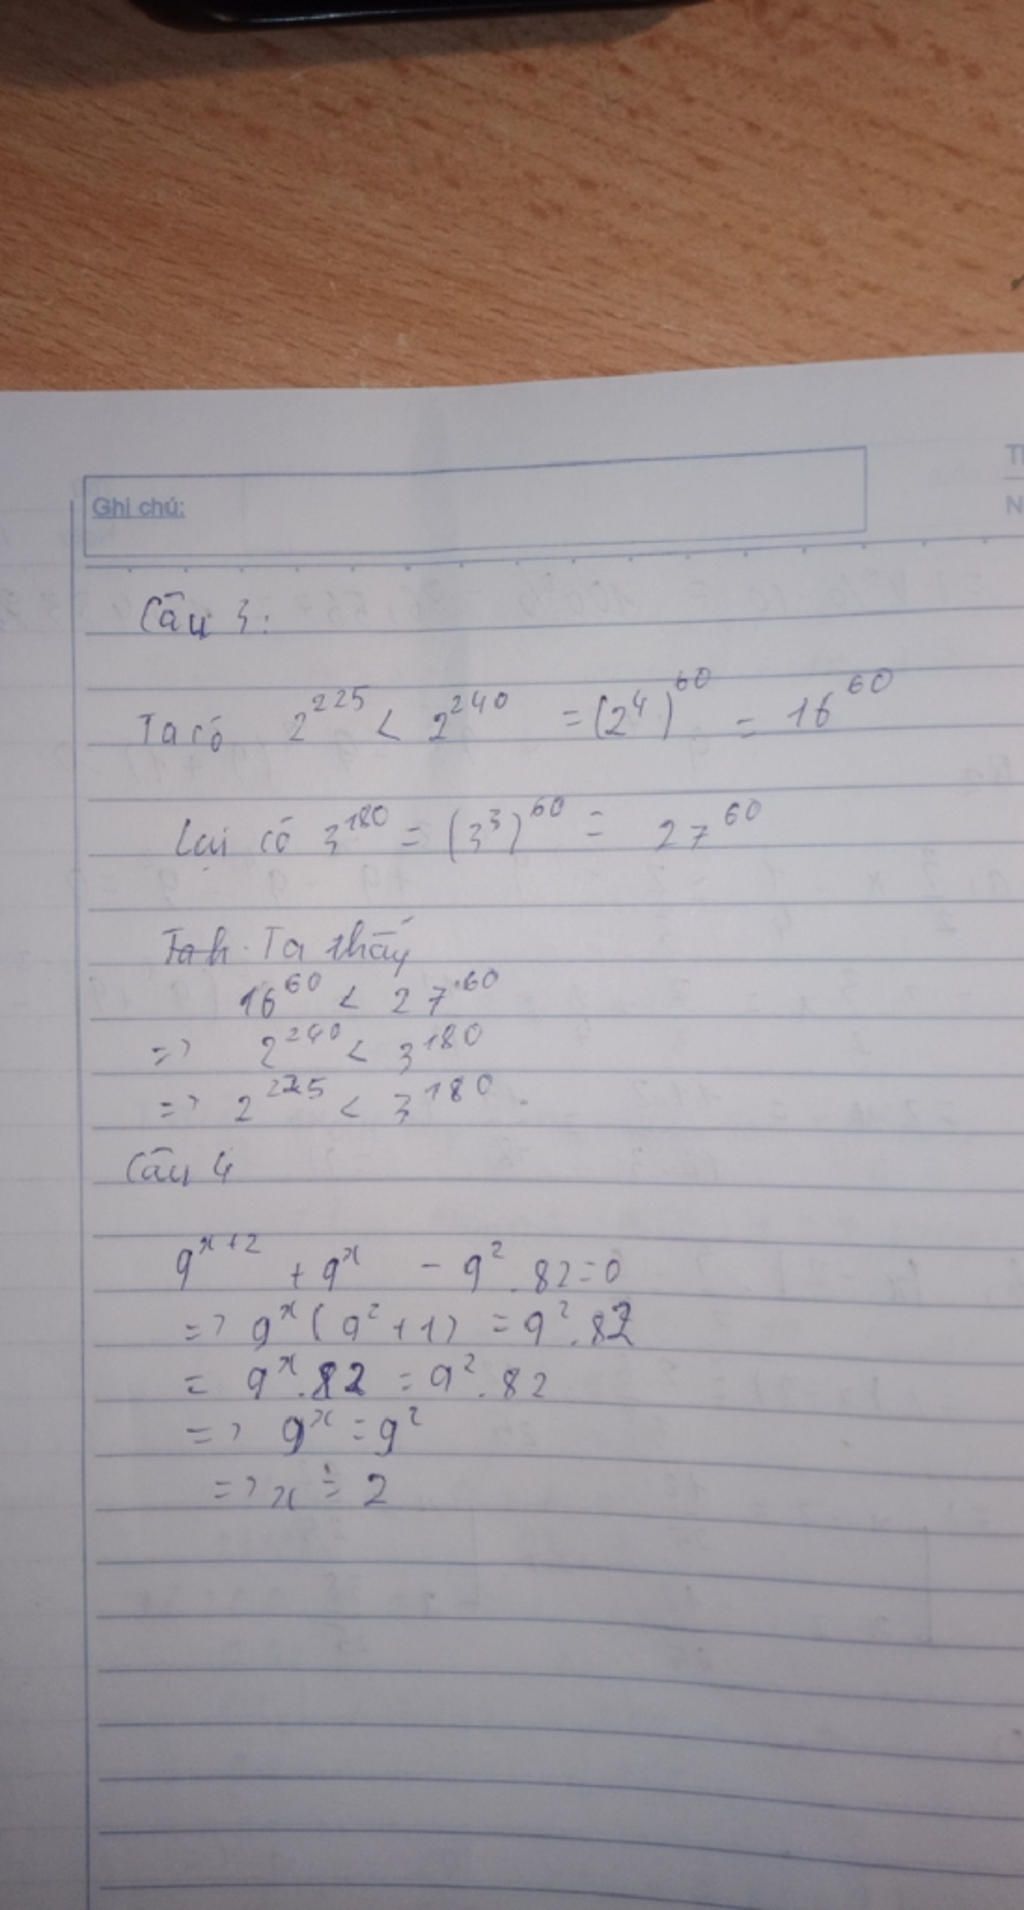 Ghi chú:
Câu 3:
Ta có 2^225 < 2^240 = (2^4)^60 = 16^60
Lại có 3^180 = (3^3)^60 = 27^60
Ta thấy
16^60 < 27^60
=> 2^240 < 3^180
=> 2^225 < 3^180.
Câu 4
9^x+2 + 9^x - 9^2.82=0
=> 9^x(9^2+1) = 9^2.82
= 9^x.82 = 9^2.82
=> 9^x = 9^2
=> x = 2